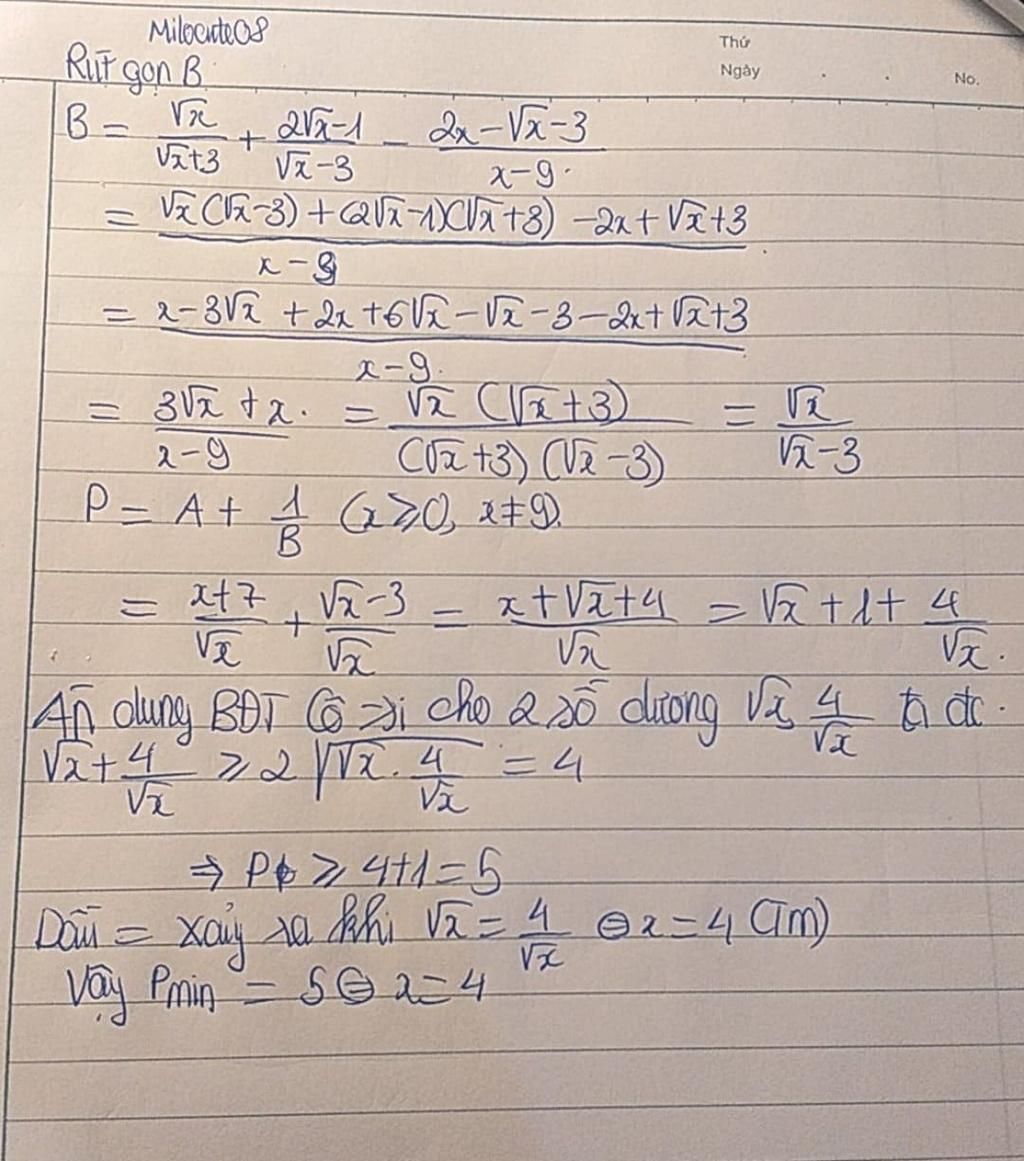 Milocute08
Thứ
Rút gọn B
Ngày . . No.
B = √x/(√x+3) + (2√x-1)/(√x-3) - (2x-√x-3)/(x-9)
= (√x(√x-3) + (2√x-1)(√x+3) - 2x + √x + 3)/(x-9)
= (x-3√x + 2x + 6√x - √x - 3 - 2x + √x + 3)/(x-9)
= (3√x + x)/(x-9) = (√x (√x+3))/((√x+3)(√x-3)) = √x/(√x-3)
P = A + 1/B (x ≥ 0, x ≠ 9).
= (x+7)/√x + (√x-3)/√x = (x+√x+4)/√x = √x + 1 + 4/√x.
Áp dụng BĐT Cô-si cho 2 số dương √x, 4/√x ta đc.
√x + 4/√x ≥ 2√(√x . 4/√x) = 4
⇒ P ≥ 4+1 = 5
Dấu = xảy ra khi √x = 4/√x ⇔ x = 4 (Tm)
Vậy Pmin = 5 ⇔ x = 4